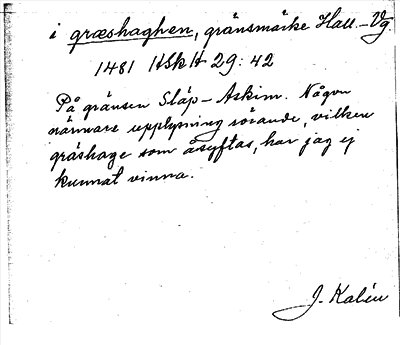 i græshaghen, gränsmärke Hall–Vg
1481 HSkH 29:42
På gränsen Släp–Askim. Någon
närmare upplysning rörande, vilken
gräshage som åsyftas, har jag ej
kunnat vinna.
J. Kalén